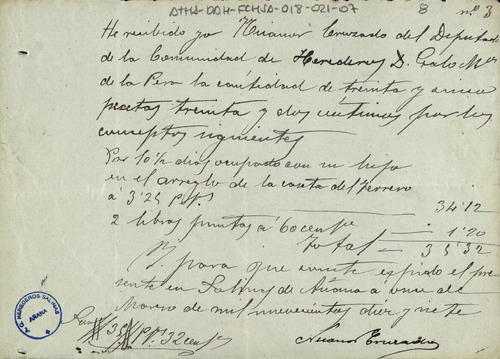 ATHA-DAH-FCHSA-018-021-07
8
nº 3
He recibido yo Nicanor Cruzado del Diputado
de la Comunidad de Herederos D. Galo Mª
de la Pera la cantidad de treinta y cinco
pesetas treinta y dos céntimos por los
conceptos siguientes
Por 10½ dias ocupado con su hijo
en el arreglo de la caseta del Terrero
á 3'25 pts 34'12
2 libras puntas á 60 cens 1'20
Total 35'32
Y para que conste expido el pre
sente en Salinas de Añana á once de
Marzo de mil novecientos diez y siete
Son 35 Pts 32 cens
Nicanor Cruzado
A. C. HEREDEROS SALINAS
ARABA